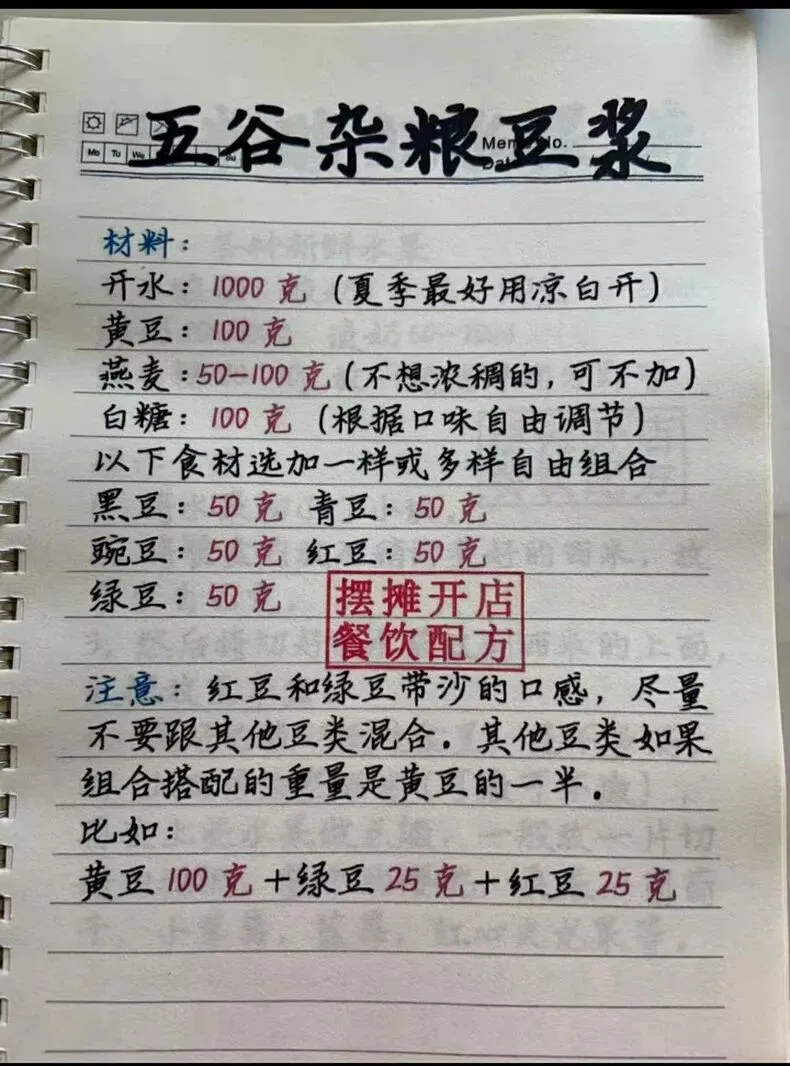 五谷杂粮豆浆
Mo Tu We
Memo No.
材料：
开水：1000 克（夏季最好用凉白开）
黄豆：100 克
燕麦：50—100 克（不想浓稠的，可不加）
白糖：100 克（根据口味自由调节）
以下食材选加一样或多样自由组合
黑豆：50 克 青豆：50 克
豌豆：50 克 红豆：50 克
绿豆：50 克
摆摊开店
餐饮配方
注意：红豆和绿豆带沙的口感，尽量
不要跟其他豆类混合。其他豆类如果
组合搭配的重量是黄豆的一半。
比如：
黄豆 100 克＋绿豆 25 克＋红豆 25 克